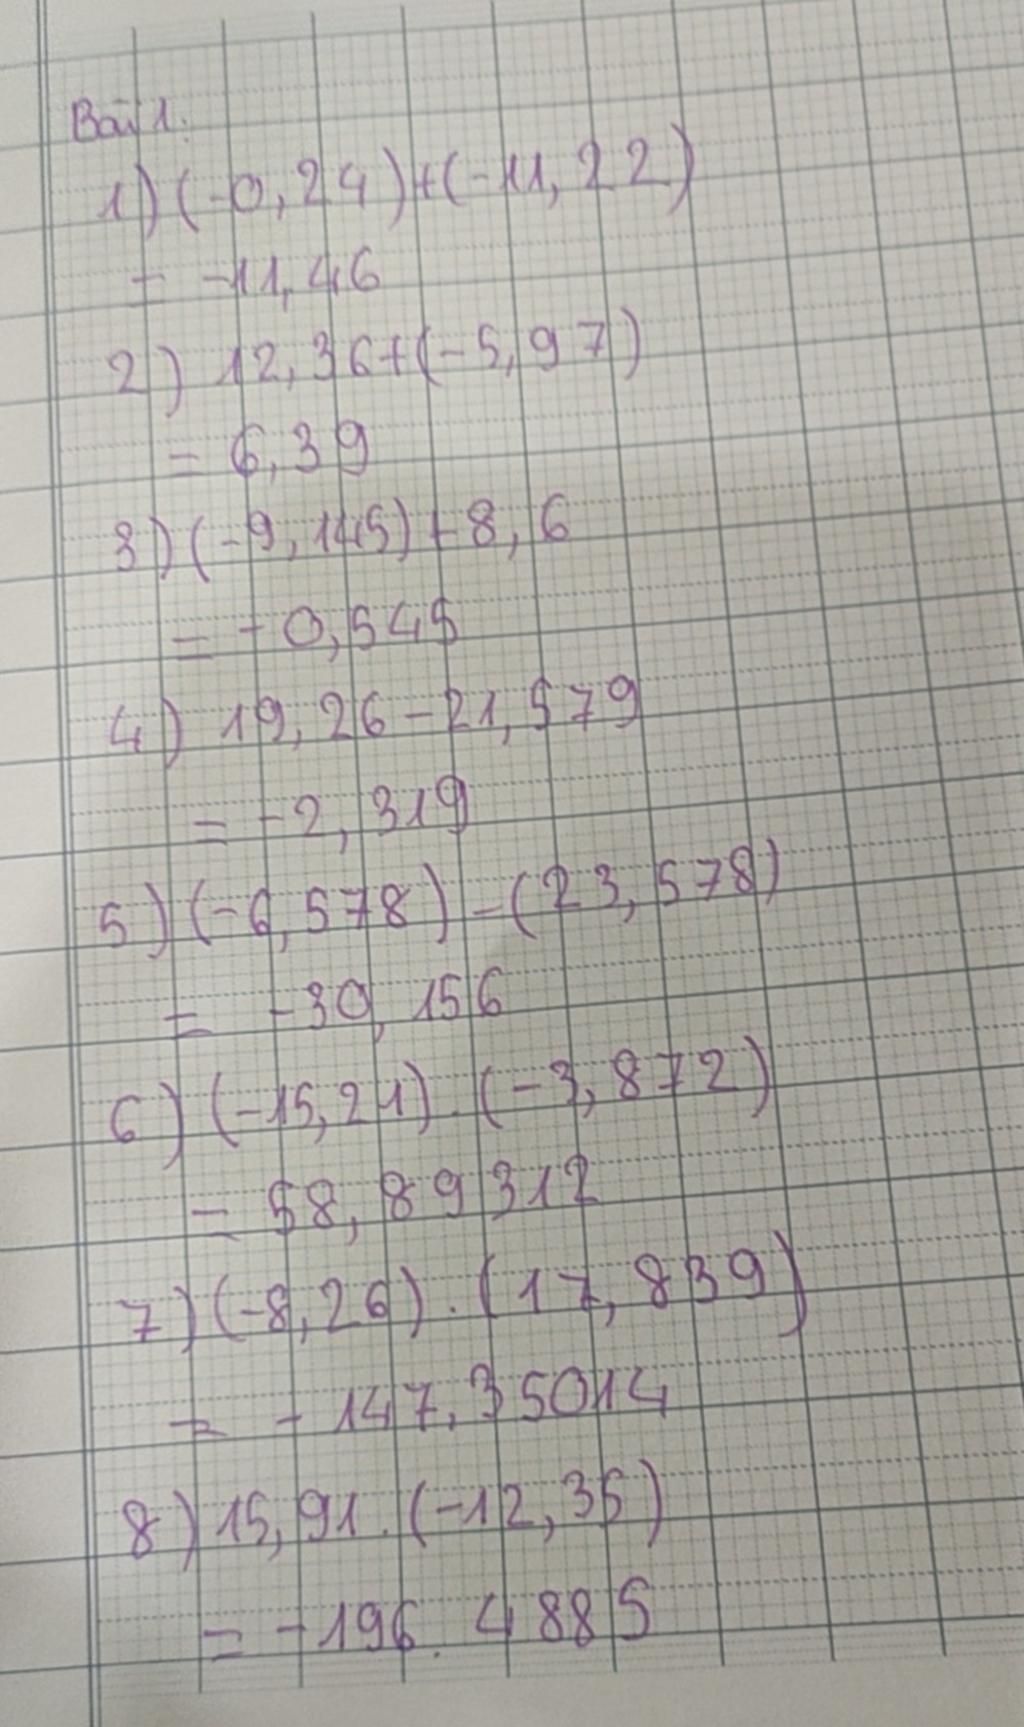 Bài 1:
1) (-0,24)+(-11,22)
= -11,46
2) 12,36+(-5,97)
= 6,39
3) (-9,145)+8,6
= -0,545
4) 19,26-21,579
= -2,319
5) (-6,578)-(23,578)
= -30,156
6) (-15,21).(-3,872)
= 58,89312
7) (-8,26).(17,839)
= -147,35014
8) 15,91.(-12,35)
= -196.4885